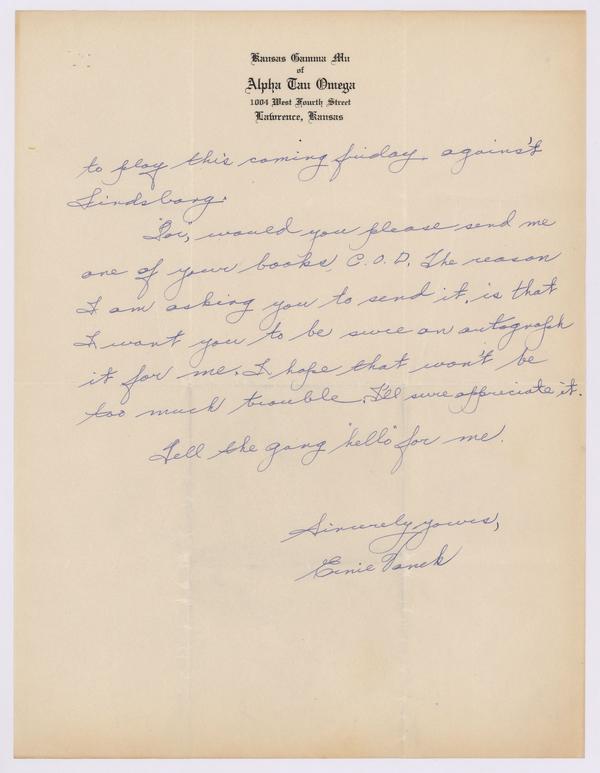 Kansas Gamma Mu
of
Alpha Tau Omega
1004 West Fourth Street
Lawrence, Kansas
to play this coming friday against
Lindsborg.
would you please send me
one of your books, C.O.D. The reason
I am asking you to send it, is that
I want you to be sure an autograph
it for me. I hope that won't be
too much trouble. I'll sure appriciate it.
Tell the gang "hello" for me.
Sincerely yours,
Ernie